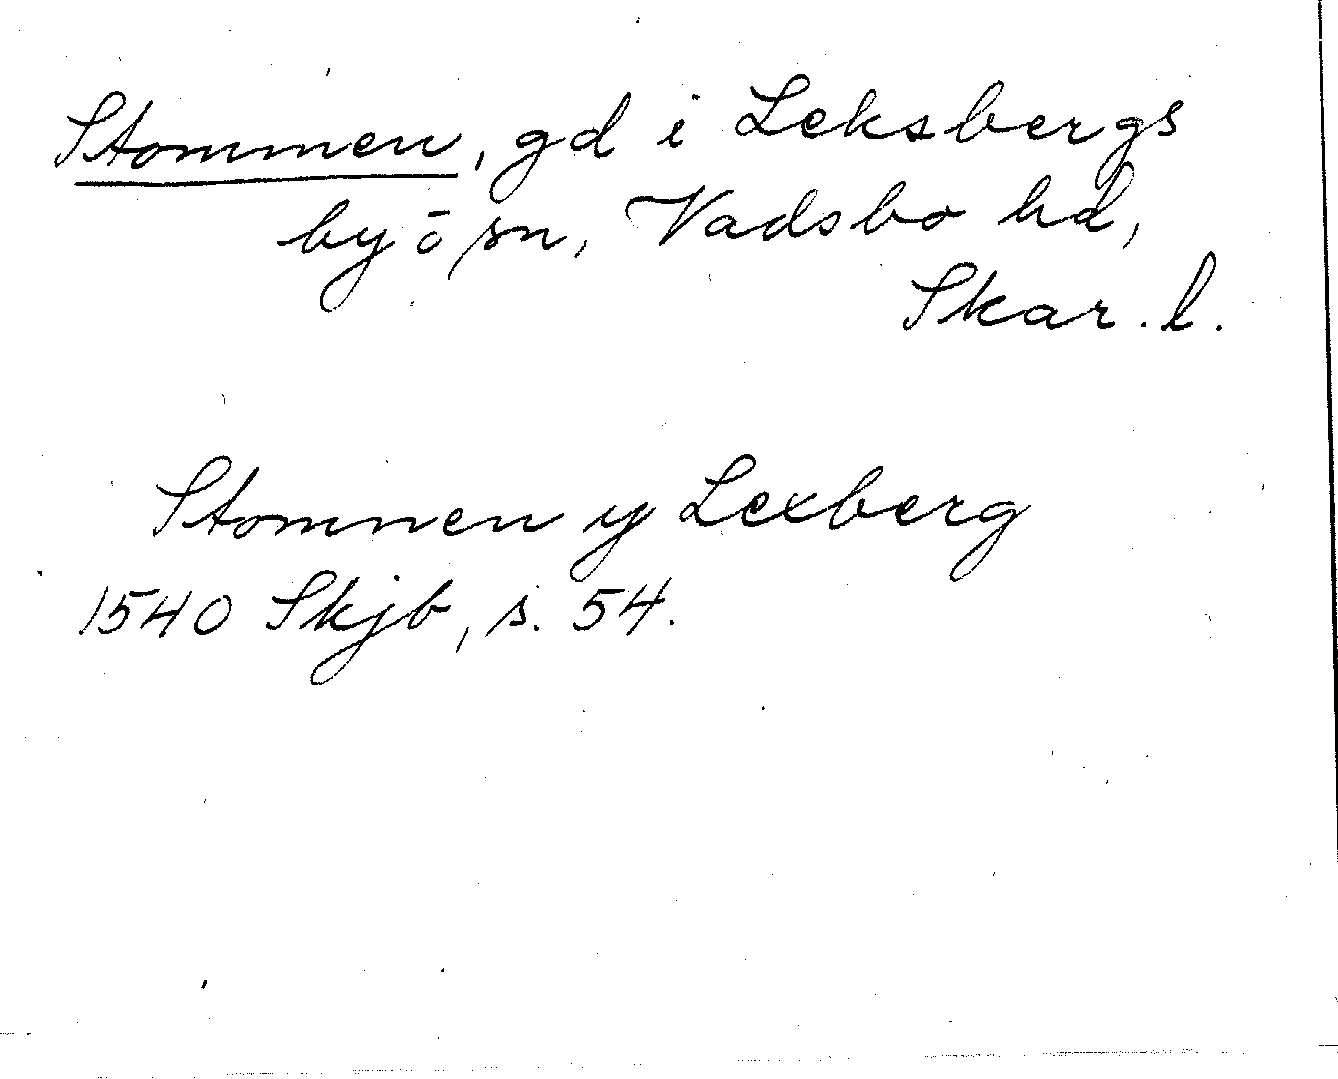 Stommen, gd i Leksbergs
by ō sn, Vadsbo hd,
Skar. l.
Stomnen y Lexberg
1540 Skjb, s. 54.